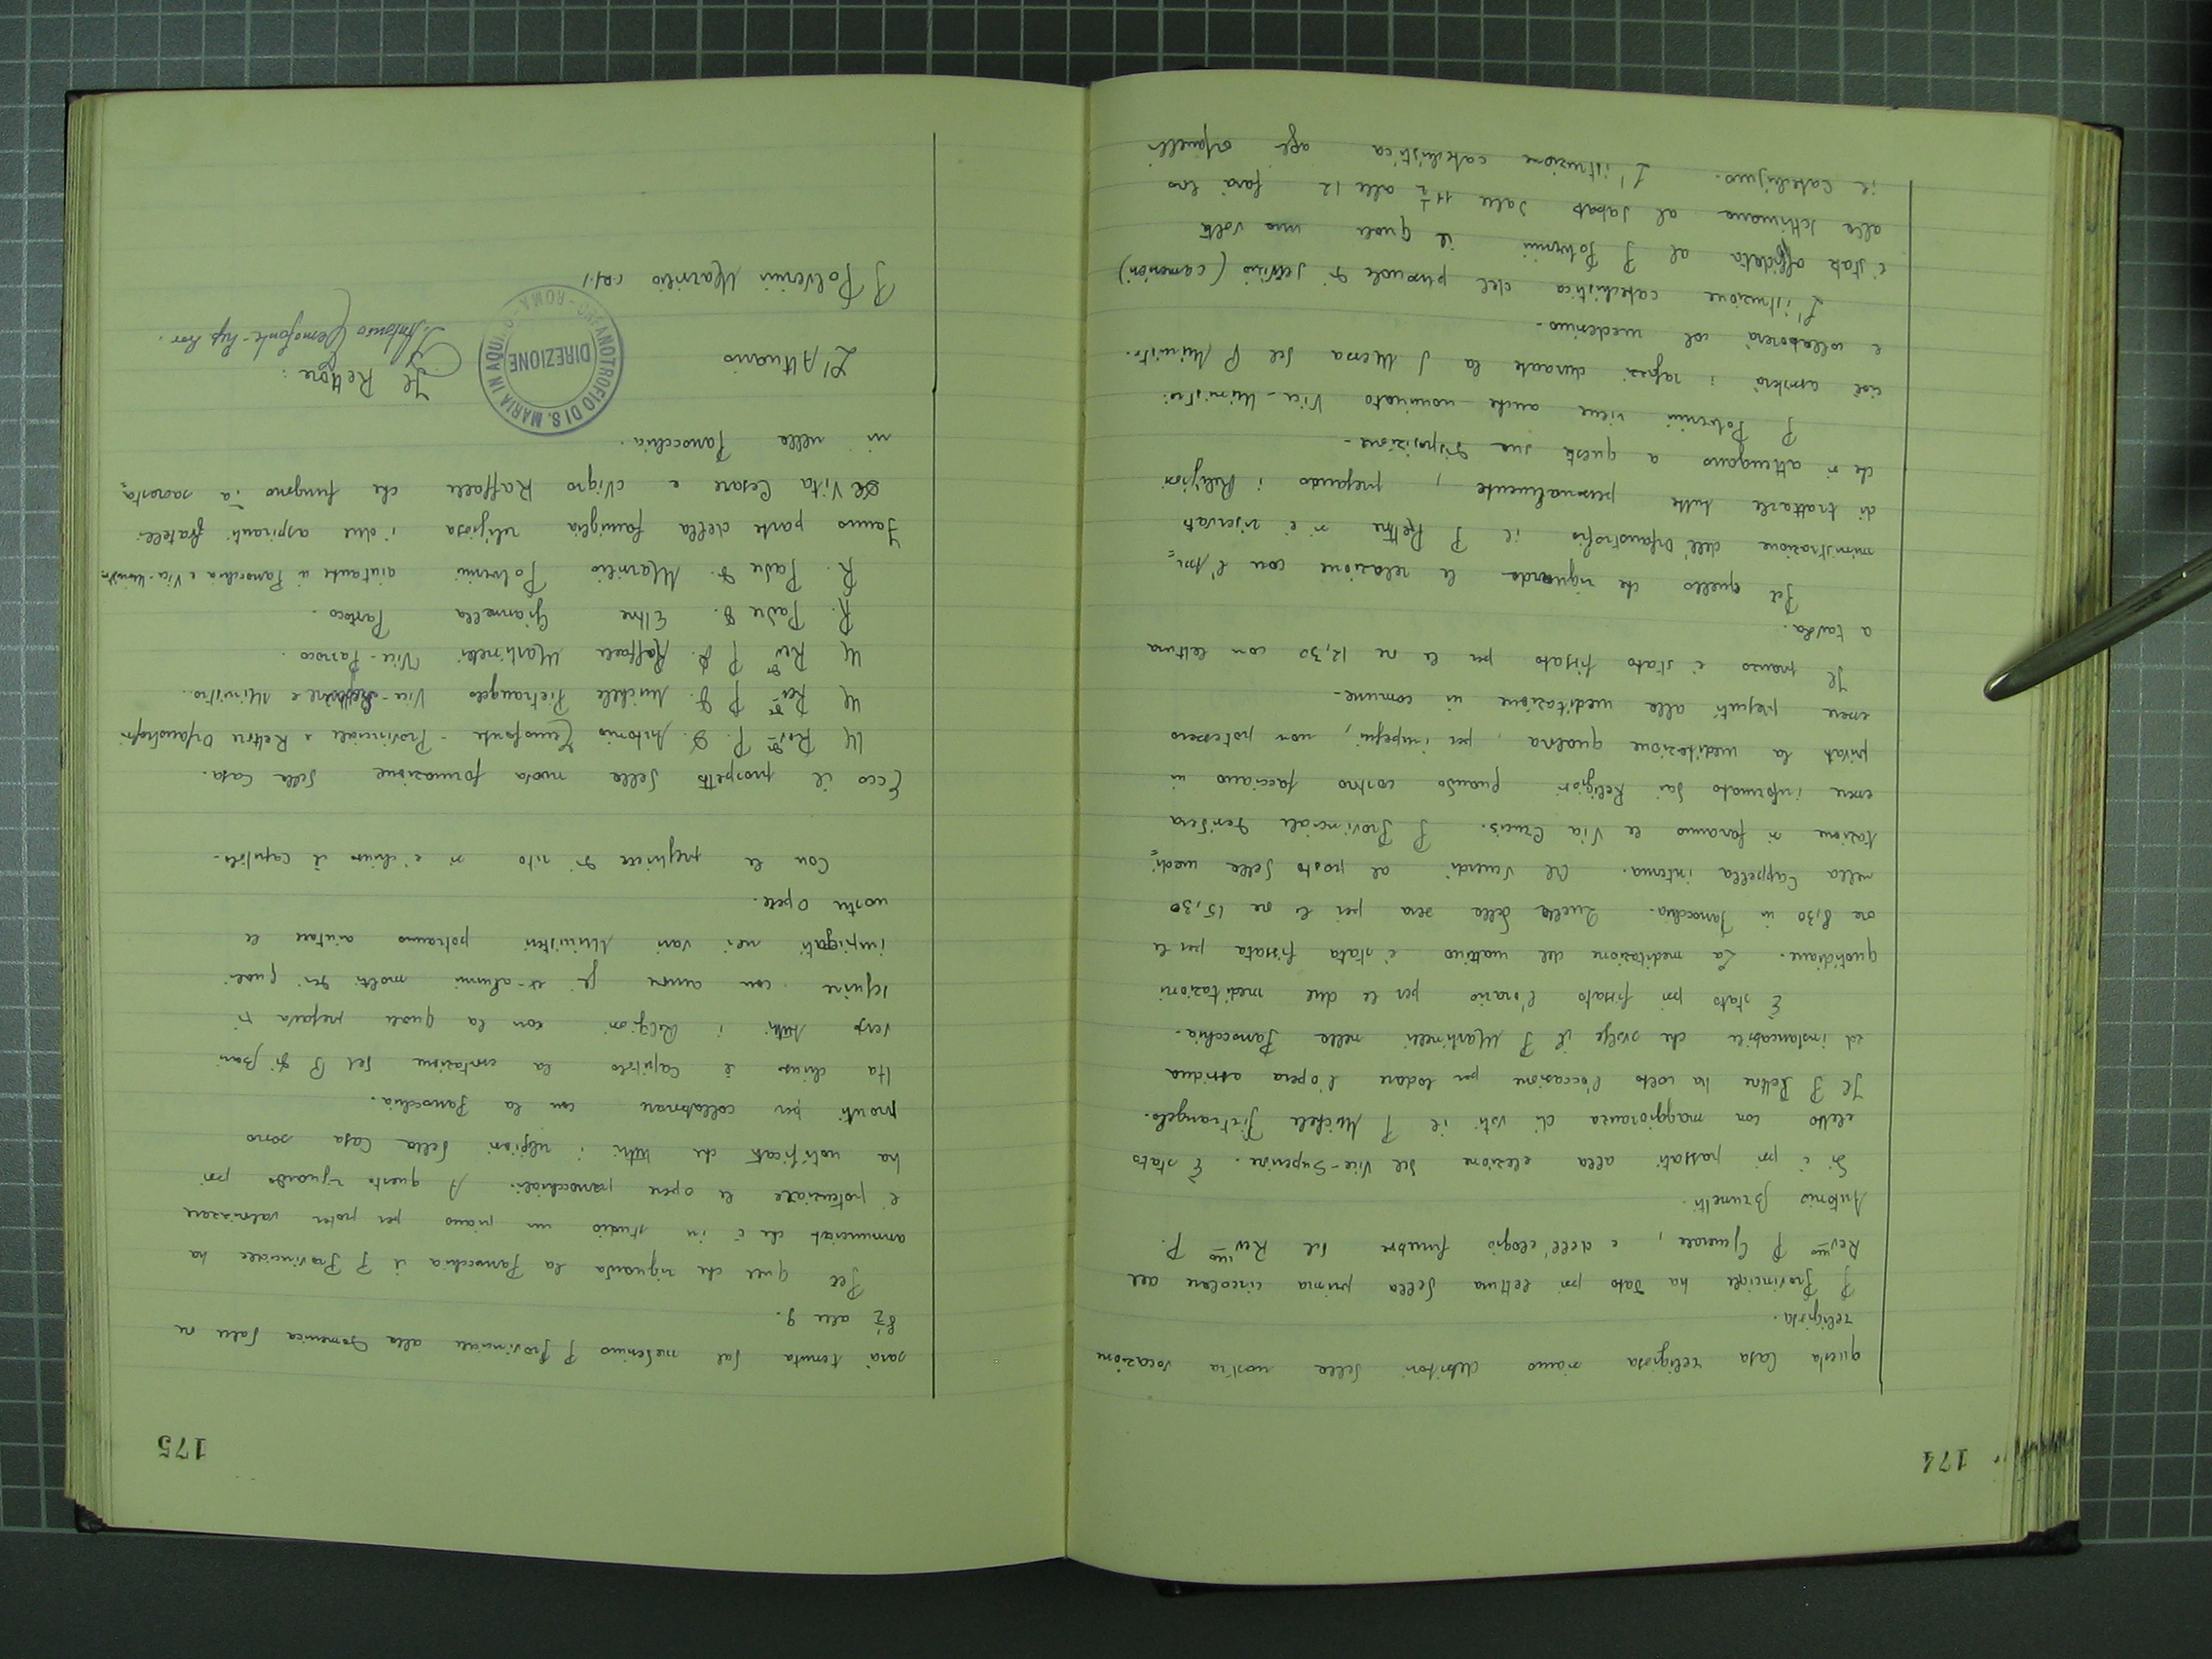 174
questa Casa religiosa siamo debitori della nostra vocazione
religiosa.
P. Provinciale ha dato poi lettura della prima circolare del
Rev.mo P. Generale, e dell'elogio funebre del Rev.mo P.
Antonio Brunetti.
Si è poi passati alla elezione del Vice-Superiore. È stato
eletto con maggioranza di voti il P. Michele Pietrangelo.
Il P. Rettore ha colto l'occasione per lodare l'opera assidua
ed instancabile che svolge il P. Martinelli nella Parrocchia.
È stato poi fissato l'orario per le due meditazioni
quotidiane. La meditazione del mattino è stata fissata per le
ore 8,30 in Parrocchia. Quella della sera per le ore 15,30
nella Cappella interna. Al Venerdì al posto della medi=
tazione si faranno la Via Crucis. P. Provinciale desidera
essere informato dai Religiosi quando costoro facciano in
privato la meditazione qualora, per impegni, non potessero
essere presenti alla meditazione in comune.
Il pranzo è stato fissato per le ore 12,30 con lettura
a tavola.
Per quello che riguarda le relazione con l'Am=
ministrazione dell'Orfanotrofio il P. Rettore si è riservato
di trattarle tutte personalmente, pregando i Religiosi
che si attengano a questa sua disposizione.
P. Polverini viene anche nominato Vice-Ministro:
cioè assisterà i ragazzi durante la S. Messa del P. Ministro.
e collaborerà col medesimo.
L'istruzione catechistica del personale di servizio (camerieri)
è stata affidata al P. Polverini il quale una volta
alla settimana al Sabato dalle 11½ alle 12 farà loro
il Catechismo. L'istruzione catechistica agli orfanelli
175
sarà tenuta dal medesimo P. Provinciale alla Domenica dalle ore
8½ alle 9.
Per quel che riguarda la Parrocchia il P. Provinciale ha
annunciato che è in studio un piano per poter valorizzare
e potenziare le opere parrocchiali. A questo riguardo poi
ha notificato che tutti i religiosi della Casa sono
pronti per collaborare con la Parrocchia.
Ha chiuso il Capitolo la esortazione del P. di Bari
verso tutti i Religiosi con la quale pregava di
seguire con amore gli ex-alunni molti dei quali
impiegati nei vari Ministeri potranno aiutare le
nostre Opere.
Con le preghiere di rito si è chiuso il Capitolo.
Ecco il prospetto della nuova formazione della Casa.
M. Rev.do P. D. Antonio Zenofonte - Provinciale e Rettore Orfanotrofi.
M. Rev.do P. D. Michele Pietrangelo Vice-Rettore e Ministro.
M. Rev.do P. D. Raffaele Martinelli Vice-Parroco.
R. Padre D. Ettre Giannella Parroco.
R. Padre D. Marsilio Polverini aiutante in Parrocchia e Vice-Ministro.
Fanno parte della famiglia religiosa i due aspiranti fratelli:
De Vita Cesare e Nigro Raffaele che fungono da sacresta=
ni nella Parrocchia.
Il Rettore:
P. Antonio Zenofonte - Sup. Prov.
L'Attuario
P. Polverini Marsilio c.r.s.
ORFANOTROFIO DI S. MARIA IN AQUIRO - ROMA
DIREZIONE